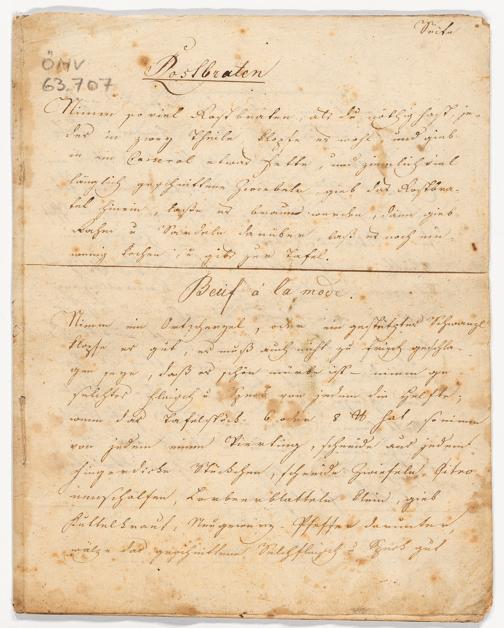 Seite
ÖMV
63.707
Rostbraten
Nimm so viel Rostbraten, als du nöthig hast, je-
der in zwey Theile klopfe es wohl, und gieb
in ein Casserol etwas Fette, und ziemlich viel
länglich geschnittene Zwiebeln, gieb das Rostbra-
tel hinein, lasse es braun werden, dann gieb
Rahm u Sardeln darüber, lass es noch ein
wenig kochen, u gibs zur Tafel.
Beuf à la mode.
Nimm ein Ortscherzel, oder ein gestutztes Schwanzl
klopfe es gut, es muß auch nicht zu frisch geschla-
gen seyn, daß es schön mürbe ist - nimm ge
selchtes Fleisch u Speck von jedem die Helfte;
wenn das Tafelstück 6 oder 8 ℔ hat, so nimm
von jedem einen Vierting, schneide aus jedem
fingerdicke Stückchen, schneide Zwiefeln, Citro
nenschalen, Lorbeerblatteln klein, gieb
Kuttelkraut, Neugewürz, Pfeffer darunter,
wälze das geschnittene Selchfleisch u Speck gut